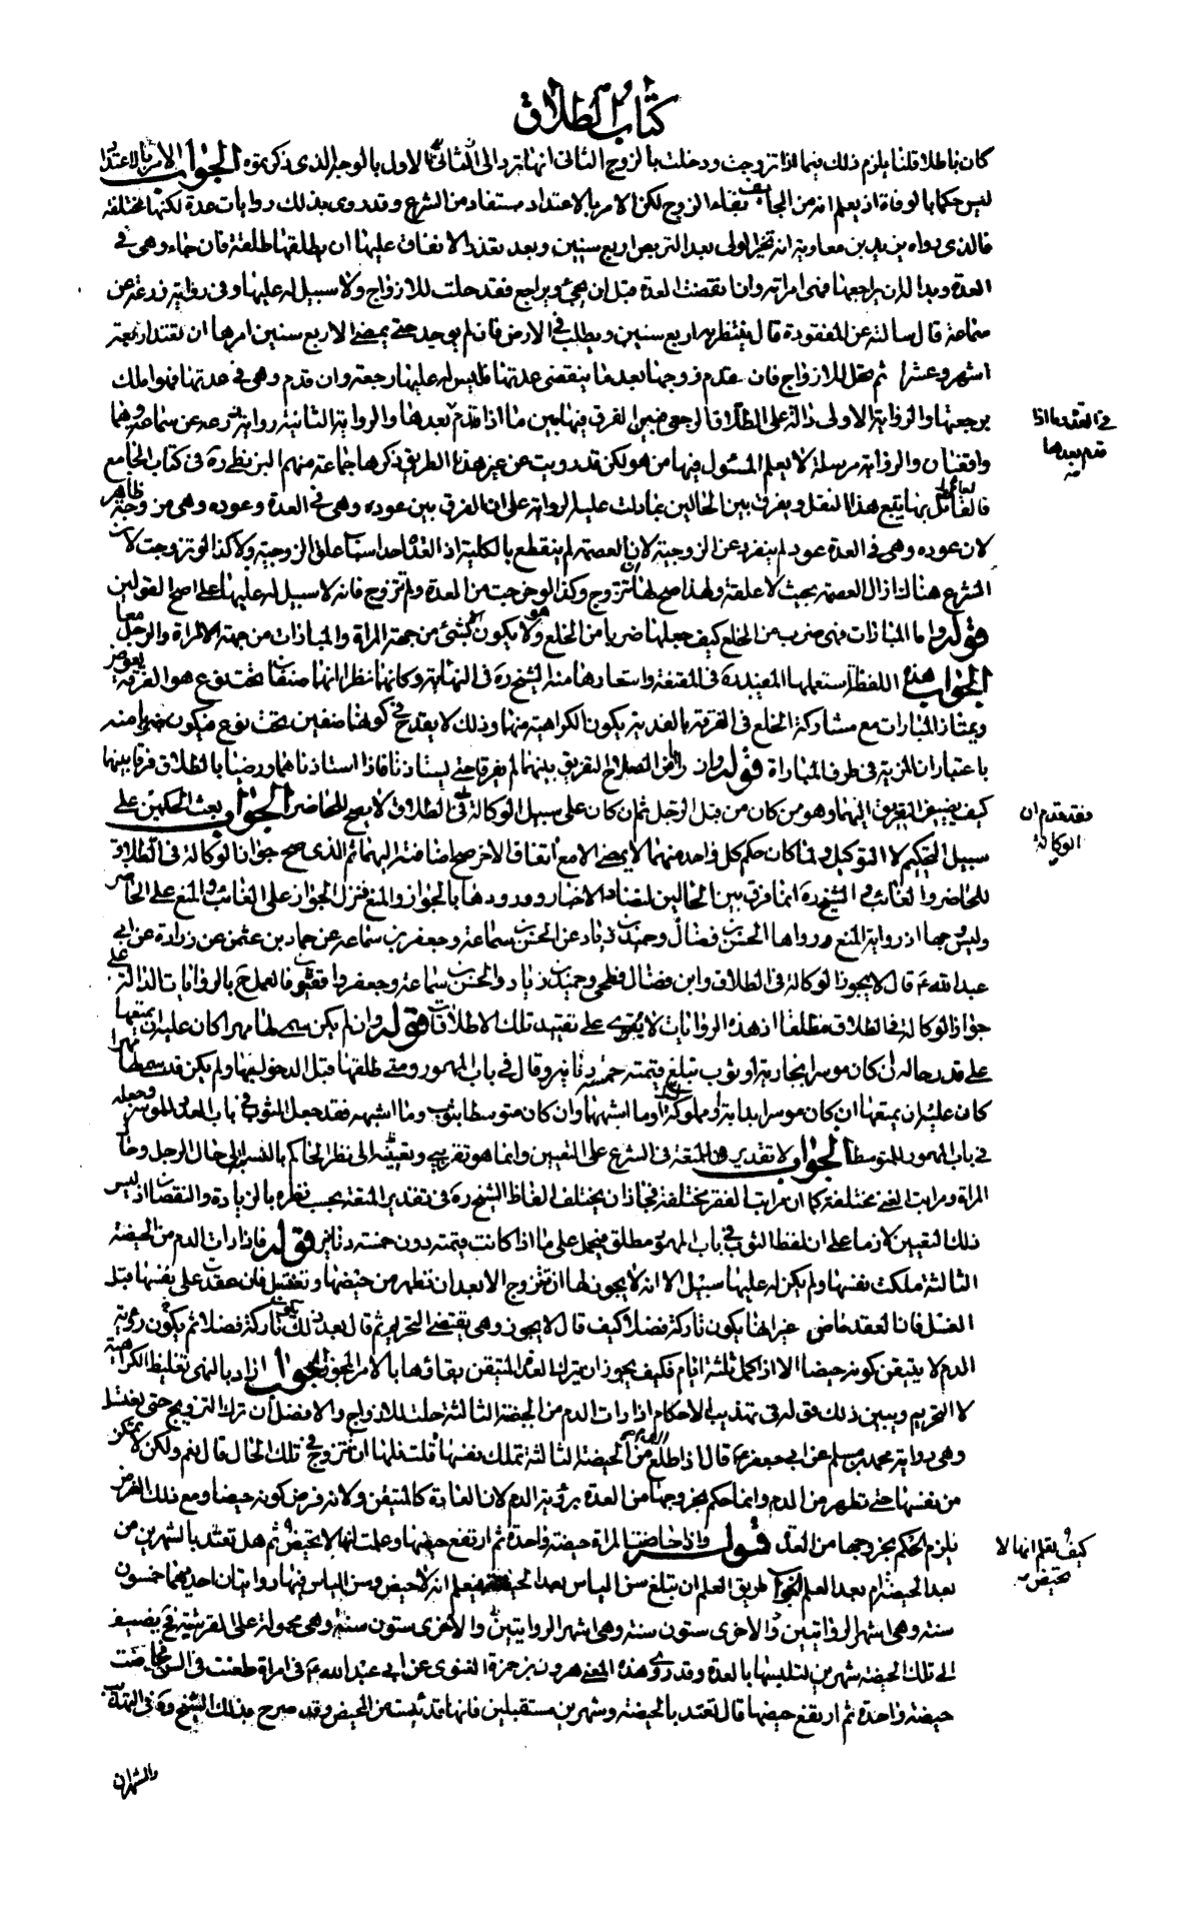 كتاب الطلاق
كان باطلا قلنا يلزم ذلك فيما اذا تزوجت ودخلت بالزوج الثانى انها ترد الى الاول بالوجه الذى ذكرتموه الجواب الامر بالاعتداد
ليس حكما بالوفاة اذ يعلم انه من الجائز بقاء الزوج لكن الامر بالاعتداد مستفاد من الشرع وقد روى بذلك روايات عدة لكنها مختلفة
فالذى رواه بريد بن معاوية انه تخير الولى بعد التربص اربع سنين وبعد تعذر الانفاق عليها ان يطلقها طلقة فان جاء وهى فى
العدة وبدا له ان يراجعها فهى امراته وان انقضت العدة قبل ان يجئ ويراجع فقد حلت للازواج ولا سبيل له عليها وفى رواية زرعة عن
سماعة قال سالته عن المفقود قال ينتظر به اربع سنين ويطلب فى الارض فان لم يوجد حتى يمضى الاربع سنين امرها ان تعتد اربعة
اشهر وعشرا ثم تحل للازواج فان قدم زوجها بعد ما ينقضى عدتها فليس له عليها رجعة وان قدم وهى فى عدتها فهو املك
برجعتها والرواية الاولى دالة على الطلاق فالرجوع ضمن الفرق فيها بين ما اذا قدم بعدها والرواية الثانية رواية زرعة عن سماعة وهما
واقفيان والرواية مرسلة لا يعلم المسئول فيها من هو لكن قد رويت عن غير هذا الطريق ذكرها جماعة منهم البزنطى ره فى كتاب الجامع
فالقائل بها يتبع هذا النقل ويفرق بين الحالين بما دلت عليه الرواية على ان الفرق بين عوده وهى فى العدة وعوده وهى من وجه ظاهر
لان عوده وهى فى العدة عود لم ينفرد عن الزوجية لان العصمة لم ينقطع بالكلية اذ العدة احد اسباب علق الزوجية ولا كذا لو تزوجت لان
الشرع هناك ازال العصمة بحيث لا علقة ولهذا صح لها التزوج وكذا لو خرجت من العدة ولم تتزوج فانه لا سبيل له عليها على اصح القولين
قوله واما المبارات فهى ضرب من الخلع كيف جعلها ضربا من الخلع ولا يكون الا بشئ من جهة المراة والمبارات من جهة المراة والرجل معا
الجواب هذه اللفظة استعملها المفيد ره فى المقنعة واستعارها منه الشيخ ره فى النهاية وكانهما نظرا انهما صنفان تحت نوع هو الفرقة بعوض
ويمتاز المبارات مع مشاركة الخلع فى الفرقة بالفدية بكون الكراهية منهما وذلك لا يقدح فى كونهما صنفين تحت نوع فيكون ضربا منه
باعتبار ان المزية فى طرف المباراة قوله وان رايا الصلاح التفريق بينهما لم يفرقا حتى يستاذنا فاذا استاذناهما ورضيا بالطلاق فرقا بينهما
كيف يضيف التفريق اليهما وهو من كان من قبل الرجل ثم ان كان على سبيل الوكالة فى الطلاق لا يصح للحاضر الجواب بعث الحكمين على
سبيل التحكيم لا التوكيل ولما كان حكم كل واحد منهما لا يمضى الا مع اتفاق الاخر صح اضافته اليهما ثم الذى صح جواز الوكالة فى الطلاق
للحاضر والغائب والشيخ ره انما فرق بين الحالين لتضاد الاخبار وورودها بالجواز والمنع فنزل الجواز على الغائب والمنع على الحاضر
وليس وجها اذ رواية المنع رواها الحسن بن فضال وحميد بن زياد عن الحسن بن سماعة وجعفر بن سماعة عن حماد بن عثمن عن زرارة عن ابى
عبد الله ع قال لا يجوز الوكالة فى الطلاق وابن فضال فطحى وحميد بن زياد والحسن بن سماعة وجعفر واقفيون فالعمل ح بالروايات الدالة على
جواز الوكالة فى الطلاق مطلقا اذ هذه الروايات لا يقوى على تقييد تلك الاطلاقات قوله وان لم يكن سمى لها مهرا كان عليه ان يمتعها
على قدر حاله ان كان موسرا بجارية او ثوب تبلغ قيمته خمسة دنانير وقال فى باب المهور ومتى طلقها قبل الدخول بها ولم يكن قد سمى لها مهرا
كان عليه ان يمتعها ان كان موسرا بدابة او مملوكة او ما اشبهها وان كان متوسطا بثوب وما اشبهه فقد جعل الثوب فى باب العدد للموسر وجعله
فى باب المهور للمتوسط الجواب لا تقدير فى المتعة فى الشرع على التعيين وانما هو تقريبى وتعيينه الى نظر الحاكم بالنسبة الى حال الرجل وحال
المراة ومراتب الغنى مختلفة كما ان مراتب الفقر مختلفة فجاز ان يختلف الفاظ الشيخ ره فى تقدير المتعة بحسب نظره بالزيادة والنقصان اذ ليس
ذلك التعيين لازما على ان لفظ الثوب فى باب المهور مطلق فيحمل على ما اذا كانت قيمته دون خمسة دنانير قوله فاذا رات الدم من الحيضة
الثالثة ملكت نفسها ولم يكن له عليها سبيل الا انه لا يجوز لها ان تتزوج الا بعد ان تطهر من حيضها وتغتسل فان عقدت على نفسها قبل
الغسل فان العقد ماض غير انها يكون تاركة فضلا كيف قال لا يجوز وهى يقتضى التحريم ثم قال بعد ذلك تاركة فضلا ثم يكون رؤية
الدم لا يتيقن كونه حيضا الا اذا كمل ثلثة ايام فكيف يجوز ان يترك العدة المتيقن بقاؤها بالامر المجوز الجواب اراد بالنهى تغليظ الكراهية
لا التحريم ويبين ذلك قوله فى تهذيب الاحكام اذا رات الدم من الحيضة الثالثة حلت للازواج والافضل ان تترك التزويج حتى يغتسل
وهى رواية محمد بن مسلم عن ابى جعفر ع قال اذا طلع من الحيضة الثالثة تملك نفسها قلت فلها ان تتزوج فى تلك الحال قال نعم ولكن لا تمكن
من نفسها حتى تطهر من الدم وانما حكم بخروجها من العدة برؤية الدم لان العادة كالمتيقن ولانه فرض كونه حيضا ومع ذلك الفرض
يلزم الحكم بخروجها من العدة قوله واذا حاضت المراة حيضة واحدة ثم ارتفع حيضها وعلمت انها لا يحيض ثم هل تعتد بالشهرين من
بعد الحيضة ام بعد العلم الجواب طريق العلم ان تبلغ سن الياس بعد الحيضة فيعلم انه لا حيض وسن الياس فيها روايتان احديهما خمسون
سنة وهى اشهر الروايتين والاخرى ستون سنة وهى اشهر الروايتين والاخرى ستون سنة وهى محمولة على القرشية فح يضيف
الى تلك الحيضة شهرين لتلبسها بالعدة وقد روى هذه المعنى هرون بن حمزة الغنوى عن ابى عبد الله ع فى امراة طعنت فى السن فحاضت
حيضة واحدة ثم ارتفع حيضها قال تعتد بالحيضة وشهرين مستقبلين فانها قد يئست من المحيض وقد صرح بذلك الشيخ ره فى التهذيب
والشهران
فى العدة وما اذا
قدم بعدها
فقد تقدم ان
الوكالة
كيف يعلم انها لا
تحيض